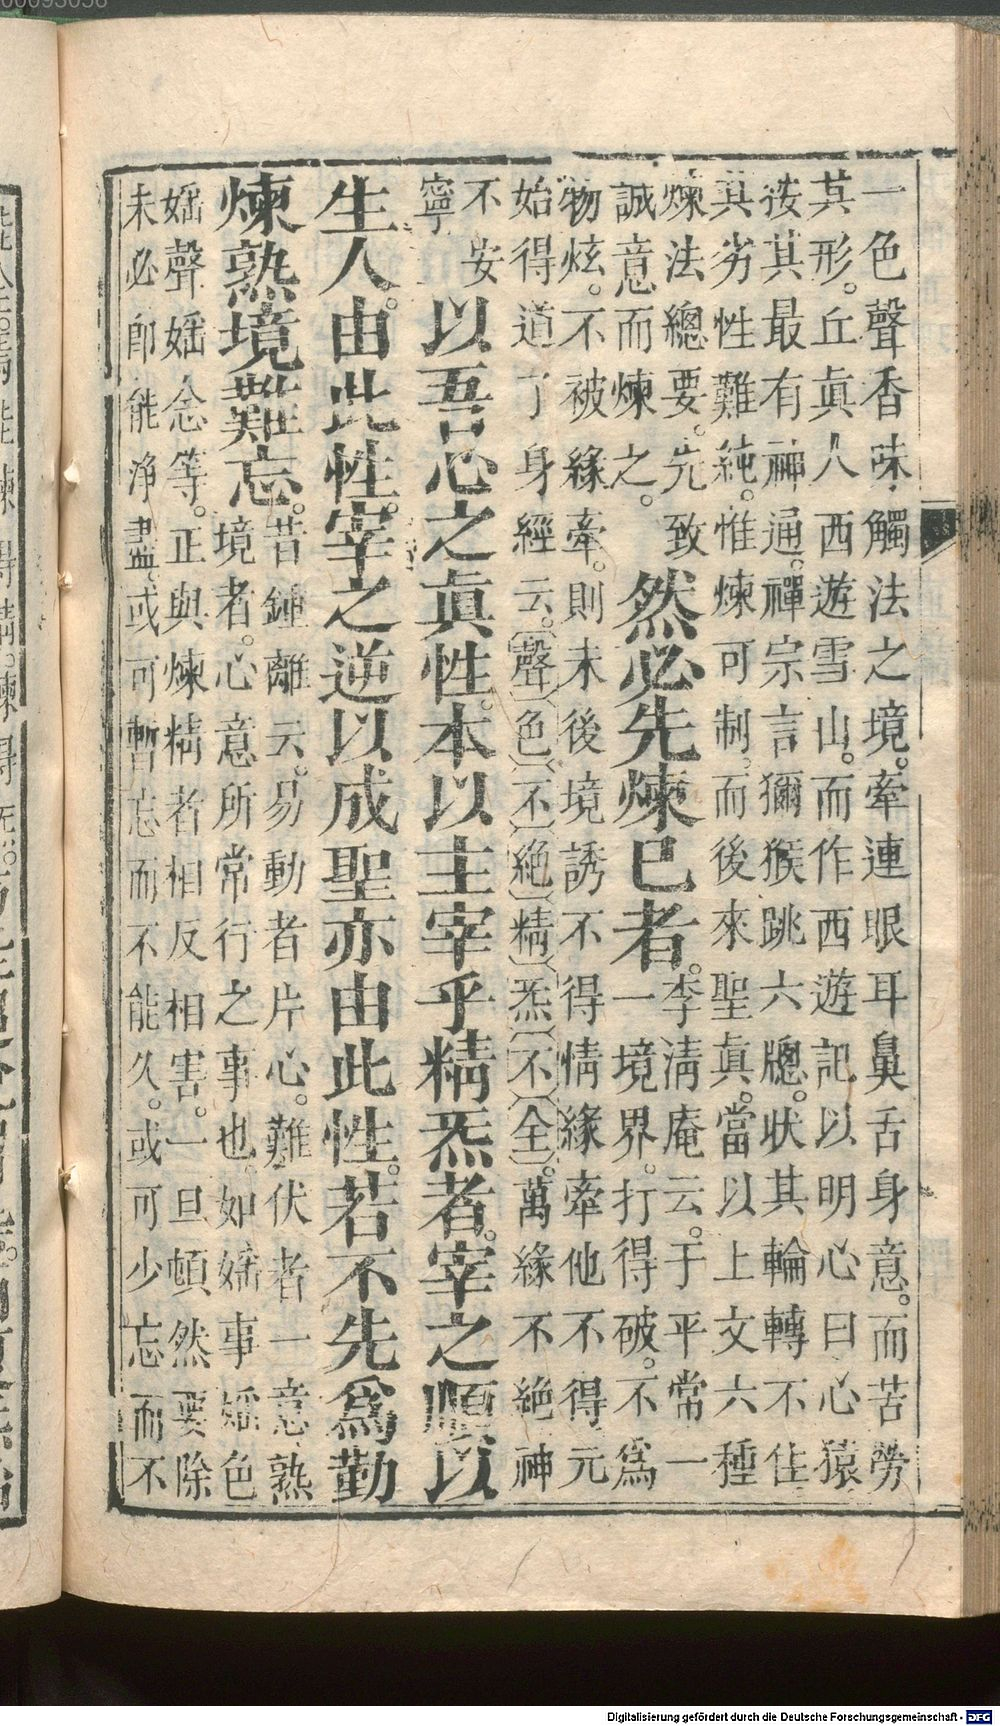 一色聲香味觸法之境。牽連眼耳鼻舌身意。而苦勞
其形。丘眞人西遊雪山。而作西遊記以明心曰心猿
按其最有神通。禪宗言獼猴跳六牕。狀其輪轉不住
其劣性難純。惟煉可制。而後來聖眞。當以上文六種
煉法總要。先致
誠意而煉之。
然必先煉已者。
李清庵云。于平常一
一境界。打得破。不爲
物炫。不被緣牽。則末後境誘不得情緣牽他不得元
始得道了身經云。聲色不絕精炁不全。萬緣不絕神
不安
寧
以吾心之眞性。本以主宰乎精炁者。宰之順以
生人。由此性。宰之逆以成聖亦由此性。若不先爲勤
煉熟境難忘。
昔鍾離云。易動者片心。難伏者一意熟
境者。心意所常行之事也。如婬事婬色
婬聲婬念等。正與煉精者相反相害。一旦頓然要除
未必即能淨盡。或可暫忘而不能久。或可少忘而不
Digitalisierung gefördert durch die Deutsche Forschungsgemeinschaft - DFG